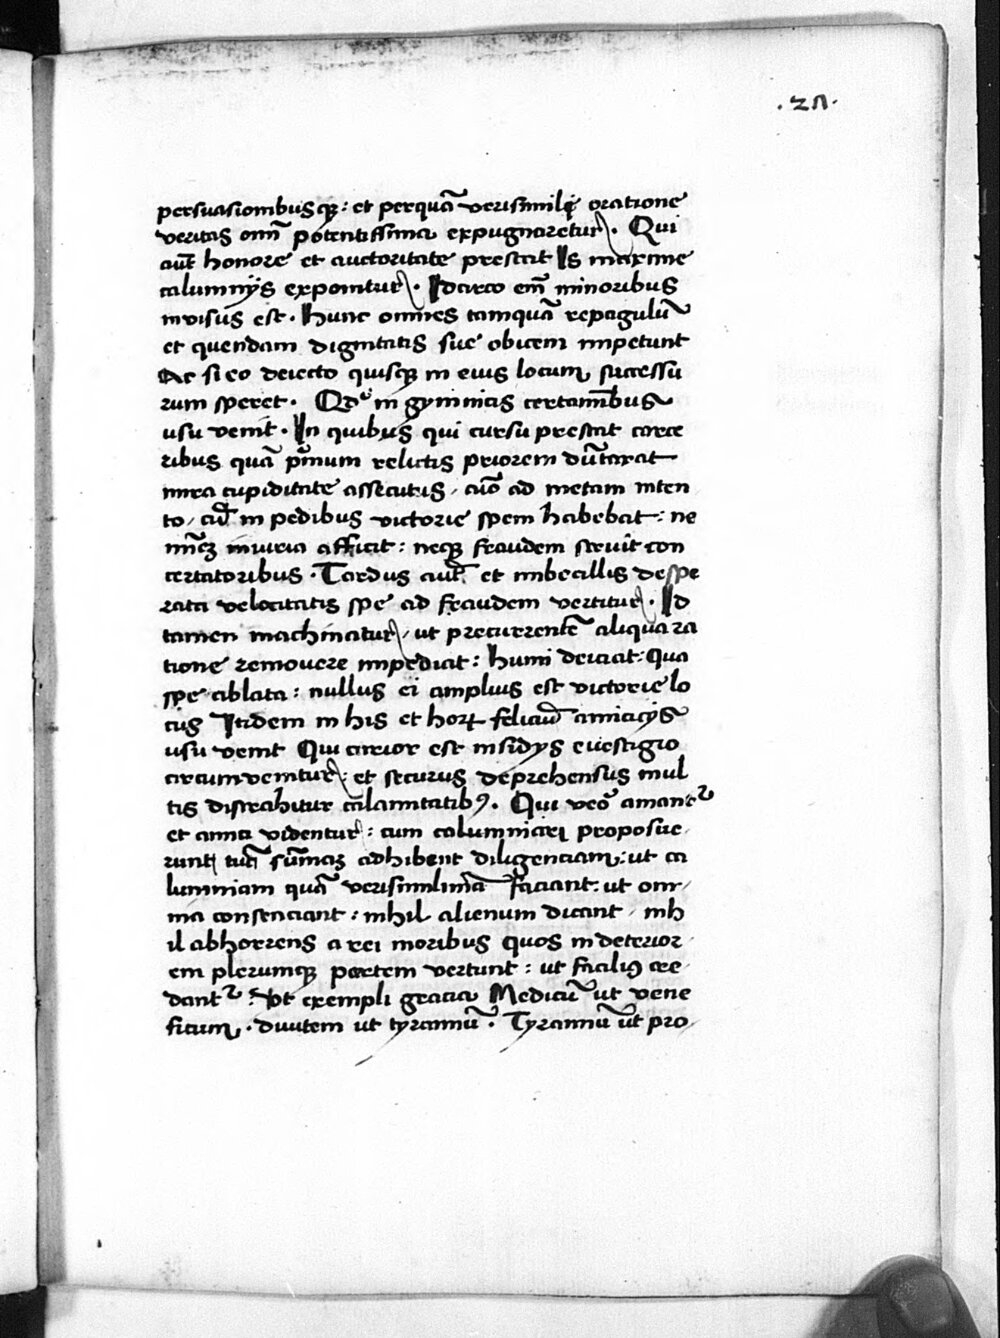 .27.
persuasionibusqꝫ: et perquā verisimiliqꝫ oratione
veritas omĩ potentissima expugnaretur. Qui
aut̃ honore et auctoritate prestat Is maxime
calumnijs exponitur. Idcirco em̃ minoribus
invisus est. Hunc omnes tamquā repagulũ
et quendam dignitatis sue obicem impetunt
Ac si eo deiecto quisqꝫ in eius locum successu
rum speret. Qđ in gymnicis certamībus
usu venit. In quibus qui cursu prestat carce
ribus quā pͥmum relictis priorem dūtaxat
mira cupiditate assecutus, aīo ad metam inten
to, cū in pedibus victorie spem habebat: ne
minēqꝫ iniuria afficit: neqꝫ fraudem struit con
certatoribus. Tardus aut̃ et imbecillis despe
rata velocitatis spe ad fraudem vertitur. Id
tamen machinatur, ut precurrentē aliqua ra
tione removere impediat: humi deiciat: Qua
spe ablata: nullus ei amplius est victorie lo
cus Itidem in his et horꝝ feliciũ amicicijs
usu venit Qui citrior est insidijs evestigio
circumvenitur: et securus deprehensus mul
tis distrahitur cālamitatibꝰ. Qui veō amantᷣ
et amici videntur: cum calumniari proposue
runt tūc sūmaꝫ adhibent diligenciam: ut ca
lumniam quā verisimilimā faciant: ut om
nia consenciant: nihil alienum dicant, nih
il abhorrens a rei moribus quos in deterior
em plerumqꝫ partem vertunt: ut faciliꝰ cre
dantᷣ. Ut exempli gracia Medicũ ut vene
ficum. divitem ut tyrannũ. Tyrannũ ut pro